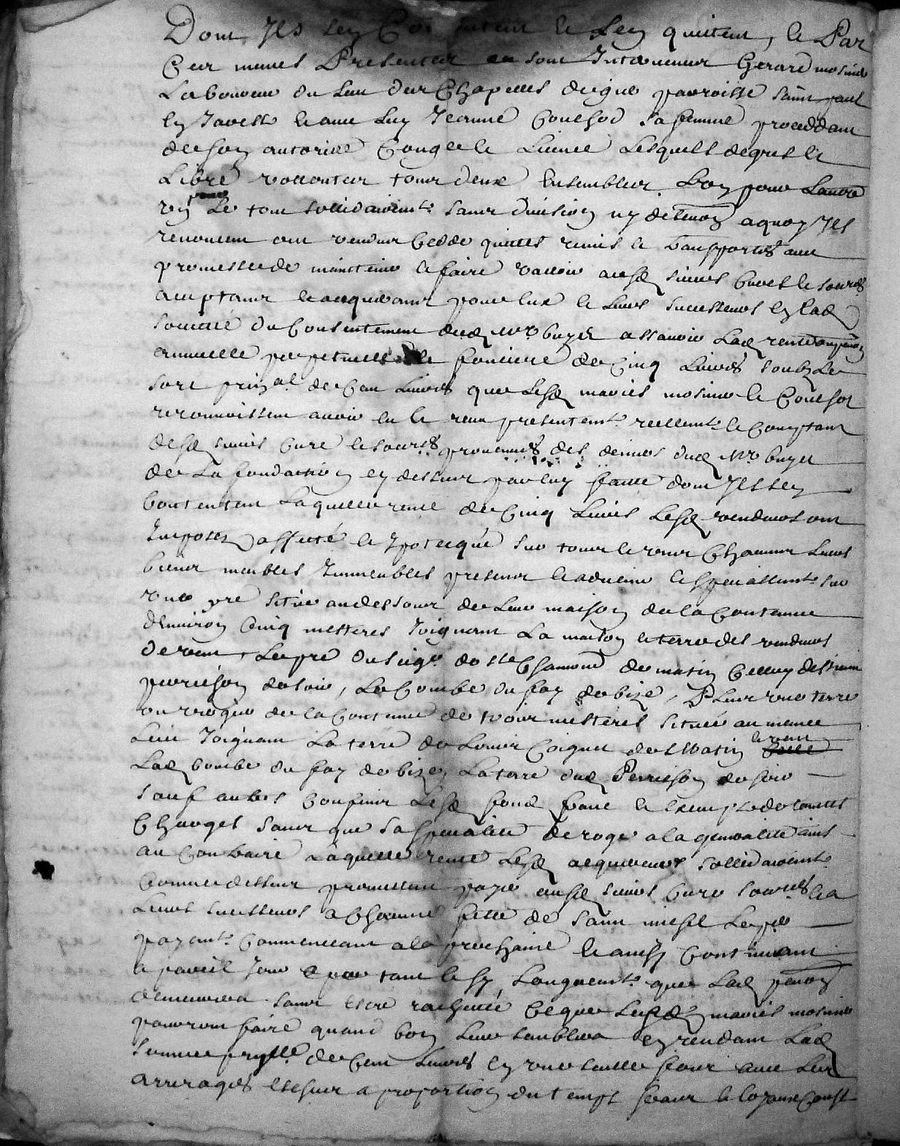 Dont Ils sen Contentent & Len quittent, & Par
Ceux mesmes Presentes en sont Intervenus Gerard mosnier
Laboureur du Lieu des Chapelles parroisse saint paul
En Javest & avec Luy Jeanne Couchod sa femme proceddant
de son autorité Congé & Licence Lesquels de gré &
Libre vollonté tous deux Ensembles, L'un pour L'autre
un & seul pour Le tout sollidairemt. sans division ny a quoy Ils
renoncent ont vendu ceddé quitté remis & Transporté avec
promesse de maintenir & faire valloir ausd. sieurs Curé & societ.
acceptants & acquerants pour Eux & Leurs successeurs En lad.
societté du Consentement dud. Mre. buyet assavoir Lad. rente
annuelle perpetuelle & fonciere de Cinq Livres soubz Le
sort prinal. de Cent Livres que Lesd. mariés mosnier & Couchot
reconnoissent avoir Eu & receu presentemt. reellemt. & Comptant
desd. sieurs Curé & societ. provenants des deniers dud. Mre. buyet
de La fondation Cy dessus par luy faitte dont Ils sen
Contentent Laquelle rente de Cinq Livres Lesd. vendeurs ont
Imposée, assise & Ipotecqué sur tous & uns Chacuns Leurs
biens meubles Immeubles presents & advenir & speciallemt. sur
un pré situé au dessous de Leur maison de la Contenue
d'environ Cinq mesteres Joignant La maison & terre des vendeurs
de vent, Le pré du seigr. de St Chamond de matin Celluy de
perrichon de soir, La Combe du fay de bize, Plus une terre
de la Contenue de trois mesteres située au mesme
Lieu Joignant La terre de Louis Coignet de Matin & vent
Lad. Combe du fay de bize, La terre dud. Perrichon de soir
sauf autres Confins Lesd. fonds francs & Exempts de touttes
Charges sans que sa specialité deroge a la generalité ains
au Contraire Laquelle rente Lesd. acquereurs sollidairemt.
Comme dessus promettent payer ausd. sieurs Curé societ. & a
Leurs successeurs a Chacune feste de saint michel Le pr.
payemt. Commencant a la prochaine & ainsy Continuant
a pareil Jour & par tant & sy Longuemt. que Lad. pension
demeurera sans Estre rachetée Ce que Lesd. mariés mosnier
pourront faire quand bon Leur semblera En rendant Lad.
somme prinlle. de Cent Livres En une seulle fois avec Les
arrerages Escheus a proportion du temps frais & Loyaux Coust